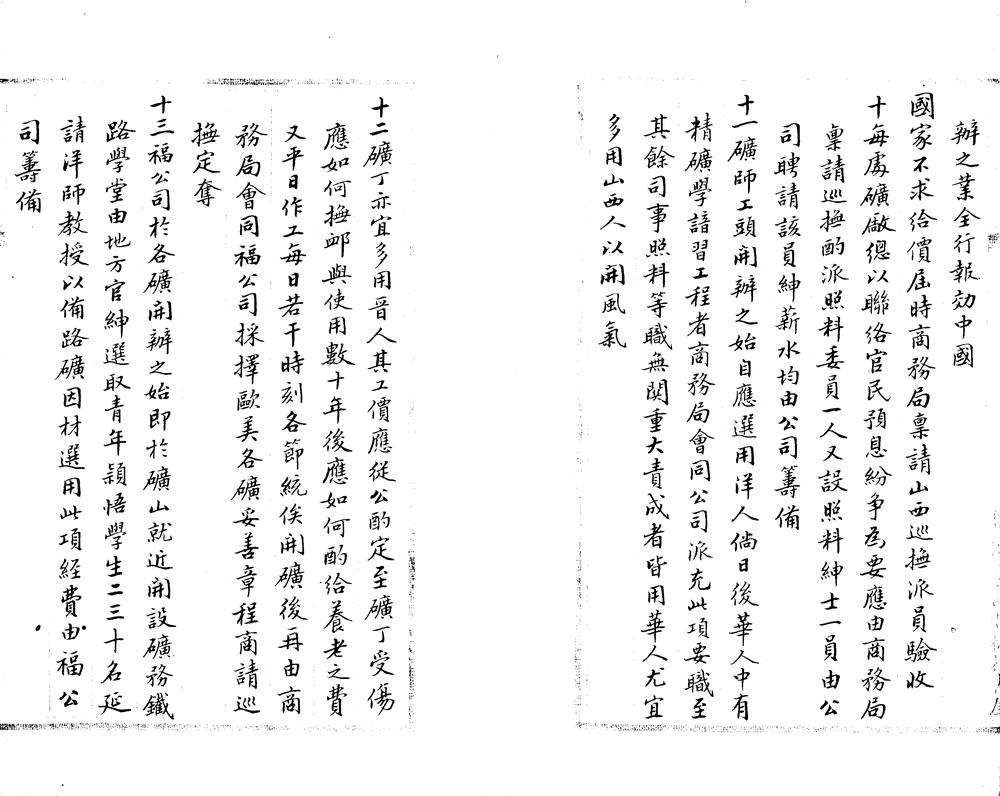 辦之業全行報効中國
國家不求給價屆時商務局禀請山西巡撫派員驗收
十每處礦廠總以聯絡官民預息紛争為要應由商務局
禀請巡撫酌派照料委員一人又設照料紳士一員由公
司聘請該員紳薪水均由公司籌備
十一礦師工頭開辦之始自應選用洋人倘日後華人中有
精礦學諳習工程者商務局會同公司派充此項要職至
其餘司事照料等職無関重大責成者皆用華人尤宜
多用山西人以開風氣
十二礦丁亦宜多用晉人其工價應從公酌定至礦丁受傷
應如何撫卹與使用數十年後應如何酌給養老之費
又平日作工每日若干時刻各節統俟開礦後再由商
務局會同福公司採擇歐美各礦妥善章程商請巡
撫定奪
十三福公司於各礦開辦之始即於礦山就近開設礦務鐵
路學堂由地方官紳選取青年穎悟學生二三十名延
請洋師教授以備路礦因材選用此項經費由福公
司籌備